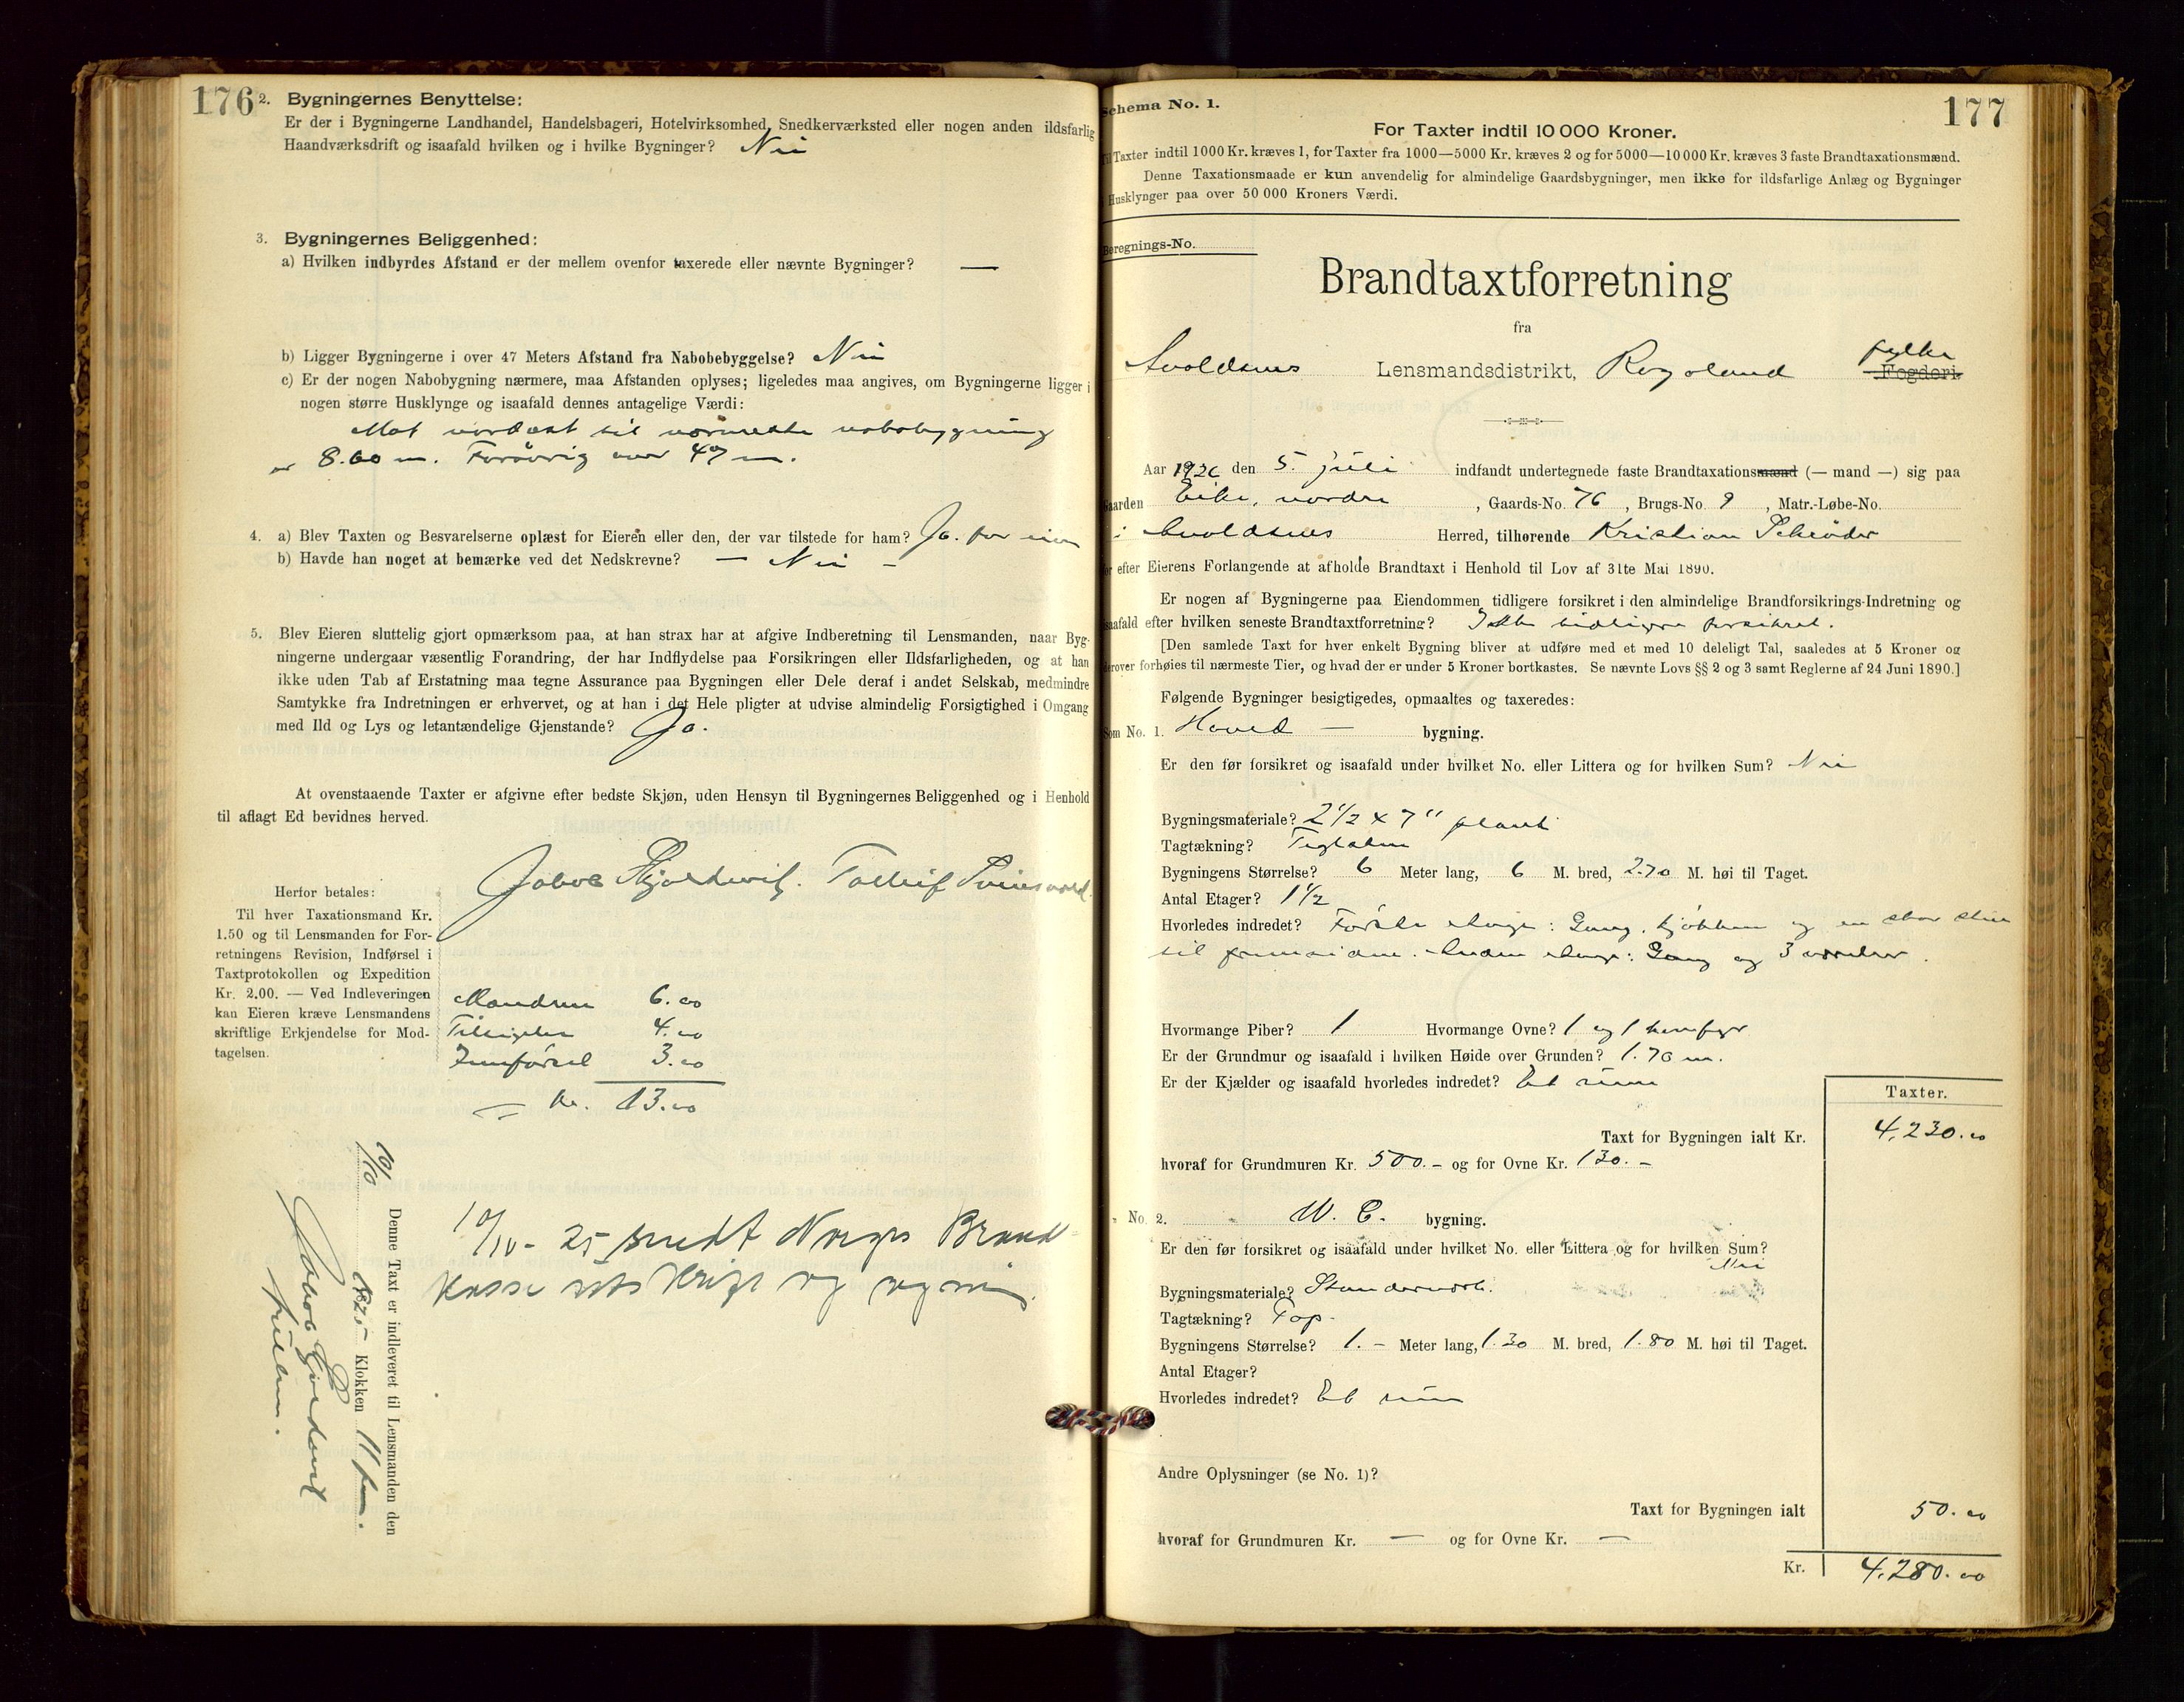 176
2. Bygningernes Benyttelse:
Er der i Bygningerne Landhandel, Handelsbageri, Hotelvirksomhed, Snedkerværksted eller nogen anden ildsfarlig
Haandværksdrift og isaafald hvilken og i hvilke Bygninger? Nei
3. Bygningernes Beliggenhed:
a) Hvilken indbyrdes Afstand er der mellem ovenfor taxerede eller nævnte Bygninger? —
b) Ligger Bygningerne i over 47 Meters Afstand fra Nabobebyggelse? Nei
c) Er der nogen Nabobygning nærmere, maa Afstanden oplyses; ligeledes maa angives, om Bygningerne ligger i
nogen større Husklynge og isaafald dennes antagelige Værdi:
Mot nordost til nærmeste nabobygning
er 8.60 m. Forøvrig over 47 m.
4. a) Blev Taxten og Besvarelserne oplæst for Eieren eller den, der var tilstede for ham? Ja. for eier
b) Havde han noget at bemærke ved det Nedskrevne? — Nei —
5. Blev Eieren sluttelig gjort opmærksom paa, at han strax har at afgive Indberetning til Lensmanden, naar Byg-
ningerne undergaar væsentlig Forandring, der har Indflydelse paa Forsikringen eller Ildsfarligheden, og at han
ikke uden Tab af Erstatning maa tegne Assurance paa Bygningen eller Dele deraf i andet Selskab, medmindre
Samtykke fra Indretningen er erhvervet, og at han i det Hele pligter at udvise almindelig Forsigtighed i Omgang
med Ild og Lys og letantændelige Gjenstande? Ja.
At ovenstaaende Taxter er afgivne efter bedste Skjøn, uden Hensyn til Bygningernes Beliggenhed og i Henhold
til aflagt Ed bevidnes herved.
Jakob
Herfor betales:
Til hver Taxationsmand Kr.
1.50 og til Lensmanden for For-
retningens Revision, Indførsel i
Taxtprotokollen og Expedition
Kr. 2.00. — Ved Indleveringen
kan Eieren kræve Lensmandens
skriftlige Erkjendelse for Mod-
tagelsen.
Mændene 6.00
4.00
Innførsel 3.00
Kr. 13.00
Denne Taxt er indleveret til Lensmanden den
1925 Klokken 11 fm.
Jakob
10/10 - 25 sendt Norges Brand-
kasse utskrift og
Schema No. 1.
177
For Taxter indtil 10 000 Kroner.
Til Taxter indtil 1000 Kr. kræves 1, for Taxter fra 1000—5000 Kr. kræves 2 og for 5000—10 000 Kr. kræves 3 faste Brandtaxationsmænd.
Denne Taxationsmaade er kun anvendelig for almindelige Gaardsbygninger, men ikke for ildsfarlige Anlæg og Bygninger
i Husklynger paa over 50 000 Kroners Værdi.
Beregnings-No.
Brandtaxtforretning
fra
Avaldsnes Lensmandsdistrikt, Rogaland fylke Fogderi.
Aar 192 den 5. juli indfandt undertegnede faste Brandtaxationsmænd (— mand —) sig paa
Gaarden Eike, nordre, Gaards-No. 76, Brugs-No. 9, Matr.-Løbe-No.
i Avaldsnes Herred, tilhørende Kristian Schrøder
for efter Eierens Forlangende at afholde Brandtaxt i Henhold til Lov af 31te Mai 1890.
Er nogen af Bygningerne paa Eiendommen tidligere forsikret i den almindelige Brandforsikrings-Indretning og
isaafald efter hvilken seneste Brandtaxtforretning? Ikke tidligere forsikret.
[Den samlede Taxt for hver enkelt Bygning bliver at udføre med et med 10 deleligt Tal, saaledes at 5 Kroner og
derover forhøies til nærmeste Tier, og hvad der er under 5 Kroner bortkastes. Se nævnte Lovs §§ 2 og 3 samt Reglerne af 24 Juni 1890.]
Følgende Bygninger besigtigedes, opmaaltes og taxeredes:
Som No. 1. Hoved — bygning.
Er den før forsikret og isaafald under hvilket No. eller Littera og for hvilken Sum? Nei
Bygningsmateriale? 2 1/2 x 7" plank
Tagtækning? Teglsten
Bygningens Størrelse? 6 Meter lang, 6 M. bred, 2.70 M. høi til Taget.
Antal Etager? 1 1/2
Hvorledes indredet? Første etage: Gang, kjøkken og en stor stue
til . Anden etage: Gang og 3 værelser.
Hvormange Piber? 1 Hvormange Ovne? 1 og 1 komfyr
Er der Grundmur og isaafald i hvilken Høide over Grunden? 1.70 m.
Er der Kjælder og isaafald hvorledes indredet? Et rum
Taxter.
Taxt for Bygningen ialt Kr. 4,230.00
hvoraf for Grundmuren Kr. 500.— og for Ovne Kr. 130.—
" No. 2. W. C. bygning.
Er den før forsikret og isaafald under hvilket No. eller Littera og for hvilken Sum?
Nei
Bygningsmateriale? Standerverk.
Tagtækning? Pap
Bygningens Størrelse? 1.— Meter lang, 1.30 M. bred, 1.80 M. høi til Taget.
Antal Etager?
Hvorledes indredet? Et rum
Andre Oplysninger (se No. 1)?
Taxt for Bygningen ialt 50.00
hvoraf for Grundmuren Kr. — og for Ovne Kr. —
Kr. 4,280.00